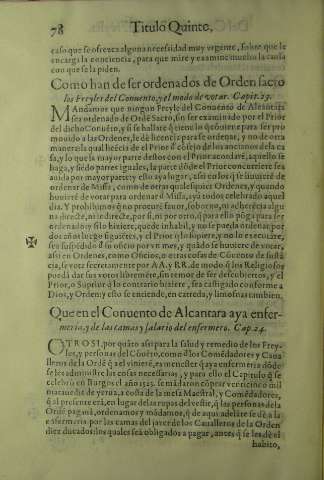 78 Titulo Quinto,
caso que se ofrezca alguna necessidad muy vrgente, sobre que le
encarga la conciencia, para que mire y examine mucho la causa
con que se la piden.
Como han de ser ordenados de Orden sacro
los Freyles del Conuento, y el modo de votar. Capit. 23.
MAndamos que ningun Freyle del Conuento de Alcantara
sea ordenado de Ordē Sacro, sin ser examinado por el Prior
del dicho Conuēto, y si se hallare q̄ tiene lo q̄ cōuiene para ser pro
mouido a las Ordenes, le dē licencia para se ordenar, y no de otra
manera: la qual licēcia de el Prior cō cōsejo de los ancianos de la ca
sa, y lo que la mayor parte dellos con el Prior acordare, aquello se
haga, y siēdo partes iguales, la parte dōde el Prior concurriere sea
auida por mayor parte: y esto aya lugar, assi en los q̄ se huuierē de
ordenar de Missa, como de otras qualesquier Ordenes, y quando
huuierē de votar para ordenar dē Missa,
Y prohibimos q̄ no procurē fauor, soborno, ni adherēcia algu
na directe, ni indirecte, por si, ni por otro, q̄ para ello pōga para ser
ordenado: y si lo hiziere, quede inhabil, y no se pueda ordenar por
dos años luego siguiētes, y el Prior q̄ lo supiere, y no lo executare,
sea suspēdido dē su oficio por vn mes, y quādo se huuiere de votar,
assi en Ordenes, como Oficios, o otras cosas de Cōuento de sustā
cia, se vote secretamente por AA. y RR. de modo q̄ los Religiosos
puedā dar sus votos libremēte, sin temor de ser descubiertos, y el
Prior, o Suprior q̄ lo contrario hiziere, sea castigado conforme a
Dios, y Orden: y esto se entiende, en carreda, y limosnas tambien.
Que en el Conuento de Alcantara aya enfer-
meria, y de las camas y salario del enfermero. Cap. 24.
OTROSI, por quāto assi para la salud y remedio de los Frey-
les, y personas del Cōuēto, como dē los Comēdadores y Caua
lleros de la Ordē q̄ a el vinierē, es menester q̄ aya enfermeria dōde
se les administrē las cosas necessarias, y para ello el Capitulo q̄ se
celebrò en Burgos el año 1523. se mādaron cōprar veinticinco mil
marauedis de yerua, a costa de la mesa Maestral, y Comēdadores,
q̄ al presente erā, en lugar de las ropas del vestir, q̄ las personas de la
Ordē pagauā, ordenamos y mādamos, q̄ de aqui adelāte se dē a la
enfermeria por las camas del jazer de los Caualleros de la Orden
diez ducados: los quales seā obligados a pagar, antes q̄ se les dē el
habito,